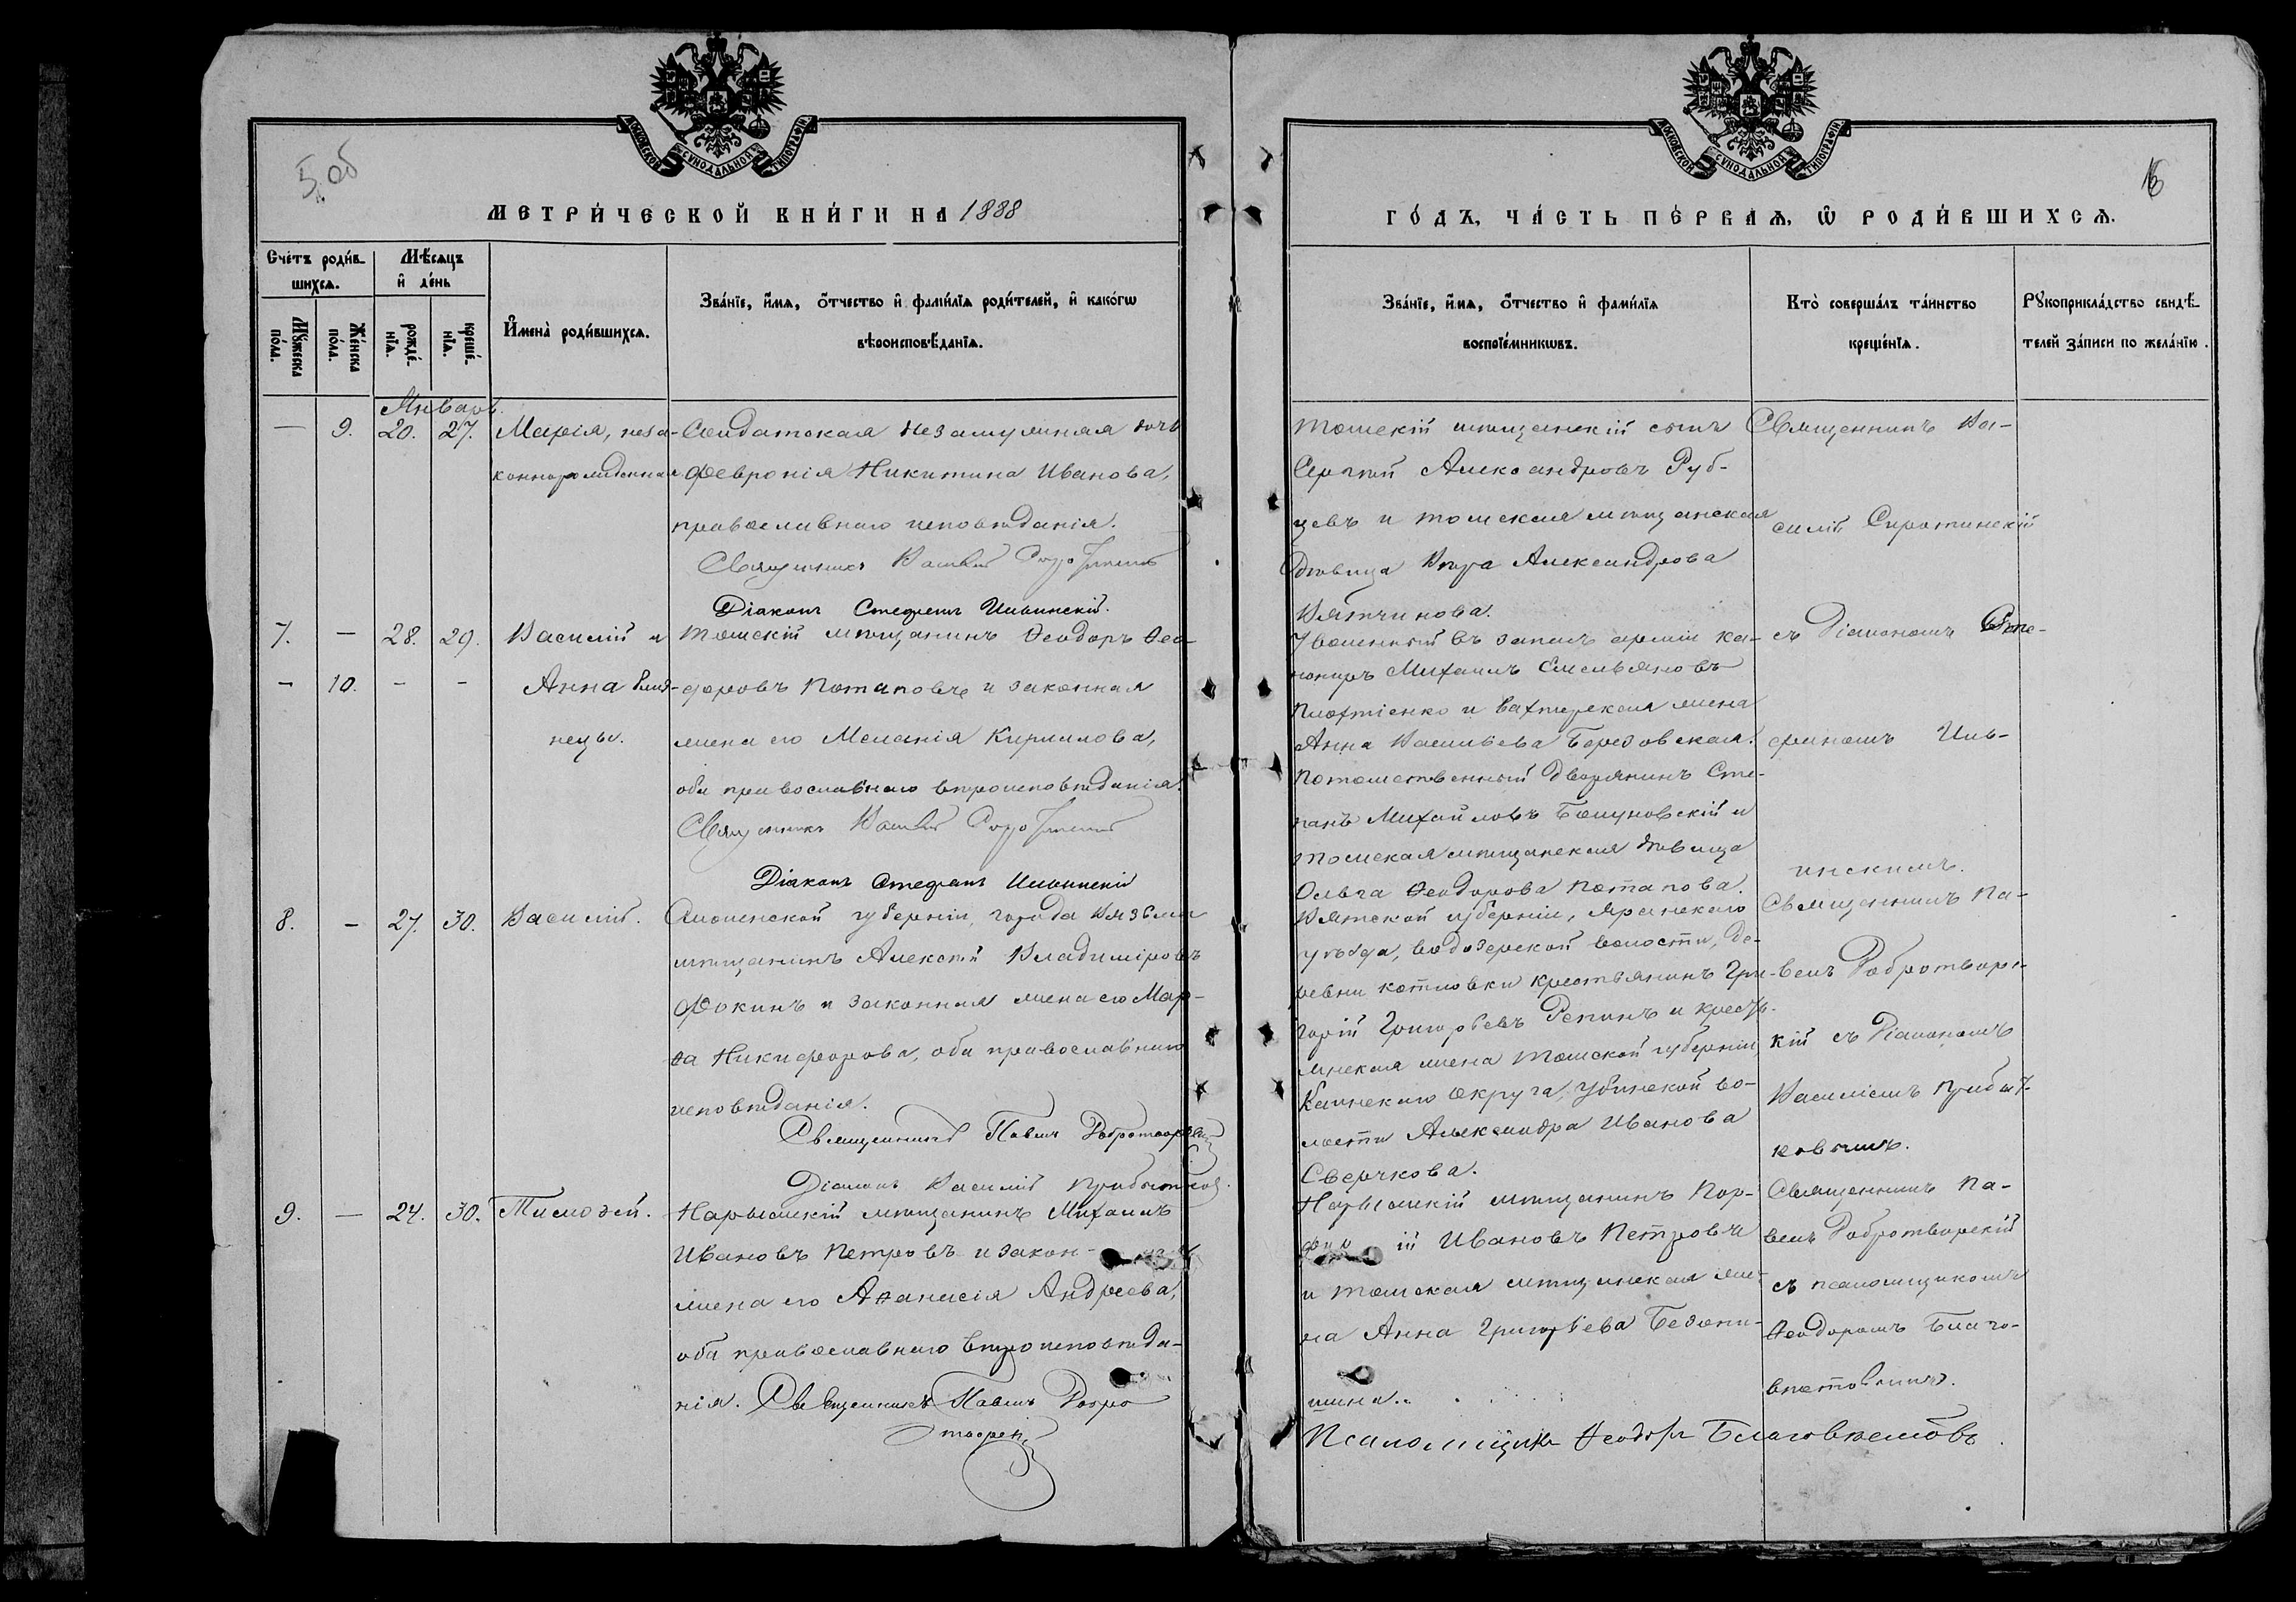 5. об
МОСКОВСКОЙ СѴНОДАЛЬНОЙ ТИПОГРАФІИ
МЕТРИ́ЧЕСКОЙ КНИ́ГИ НА 1888
Сче́тъ роди́в-
шихсѧ.
Мѣ́сѧцъ
и҆ де́нь
Мꙋ́жеска по́ла.
Же́нска по́ла.
рожде́-нїѧ.
креще́-нїѧ.
И҆мена̀ роди́вшихсѧ.
Зва́нїе, и҆́мѧ, ѻ҆́тчество и҆ фами́лїѧ роди́телей, и҆ како́гѡ
вѣроисповѣ́данїѧ.
Январь.
— 9. 20. 27. Марія, неза-
коннорожденная
Солдатская незамужняя дочь
Февронія Никитина Иванова,
православнаго исповѣданія.
Священникъ Василій Сиротинскій
Діаконъ Стефанъ Ильинскій.
7. — 28. 29. Василій и
— 10. — — Анна близ-
нецы.
Томскій мѣщанинъ Ѳеодоръ Ѳео-
доровъ Потаповъ и законная
жена его Меланія Кириллова,
оба православнаго вѣроисповѣданія.
Священникъ Василій Сиротинскій
Діаконъ Стефанъ Ильинскій
8. — 27. 30. Василій.
Смоленской губерніи, города Вязьмы
мѣщанинъ Алексѣй Владиміровъ
Фокинъ и законная жена его Мар-
ѳа Никифорова, оба православнаго
исповѣданія.
Священникъ Павелъ Добротворскій
Діаконъ Василій Прибытковъ.
9. — 24. 30. Тимоѳей.
Нарымскій мѣщанинъ Михаилъ
Ивановъ Петровъ и закон-
жена его Аѳанасія Андреева,
оба православнаго вѣроисповѣда-
нія. Священникъ Павелъ Добро
творскій
МОСКОВСКОЙ СѴНОДАЛЬНОЙ ТИПОГРАФІИ
6
ГО́ДЪ, ЧА́СТЬ ПЕ́РВАѦ, Ѡ҆ РОДИ́ВШИХСѦ.
Зва́нїе, и҆́мѧ, ѻ҆́тчество и҆ фами́лїѧ
воспрїе́мникѡвъ.
Кто̀ соверша́лъ та́инство
креще́нїѧ.
Рꙋкоприкла́дство свидѣ́-
телей за́писи по жела́нїю.
Томскій мѣщанскій сынъ
Сергѣй Александровъ Руб-
цевъ и томская мѣщанская
дѣвица Вѣра Александрова
Вятчинова.
Священникъ Ва-
силій Сиротинскій
Уволенный въ запасъ арміи ка-
ониръ Михаилъ Емельяновъ
Плохтіенко и вахтерская жена
Анна Васильева Березовская.
Потомственный дворянинъ Сте-
панъ Михайловъ Божуновскій и
томская мѣщанская дѣвица
Ольга Ѳеодорова Потапова.
съ Діакономъ Сте-
фаномъ Иль-
инскимъ.
Вятской губерніи, Яранскаго
уѣзда, водозерской волости, де-
ревни котловки крестьянинъ Гри-
горій Григорьевъ Репинъ и кресть-
янская жена Томской губерніи
Каинскаго округа, Убинской во-
лости Александра Иванова
Сверчкова.
Священникъ Па-
велъ Добротворс-
кій съ Діакономъ
Василіемъ Прибыт-
ковымъ.
Нарымскій мѣщанинъ Пор-
фи ій Ивановъ Петровъ
и томская мѣщанская же-
на Анна Григорьева Безопи-
шина.
Священникъ Па-
велъ Добротворскій
съ псаломщикомъ
Ѳеодоромъ Благо-
вѣстовымъ.
Псаломщикъ Ѳеодоръ Благовѣстовъ.